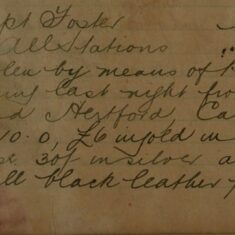 pt Foster
All Stations
len by means of
ing last night fro
d Hertford, Ca
10.0, £6 in gold in
30/ in silver a
ll black leather